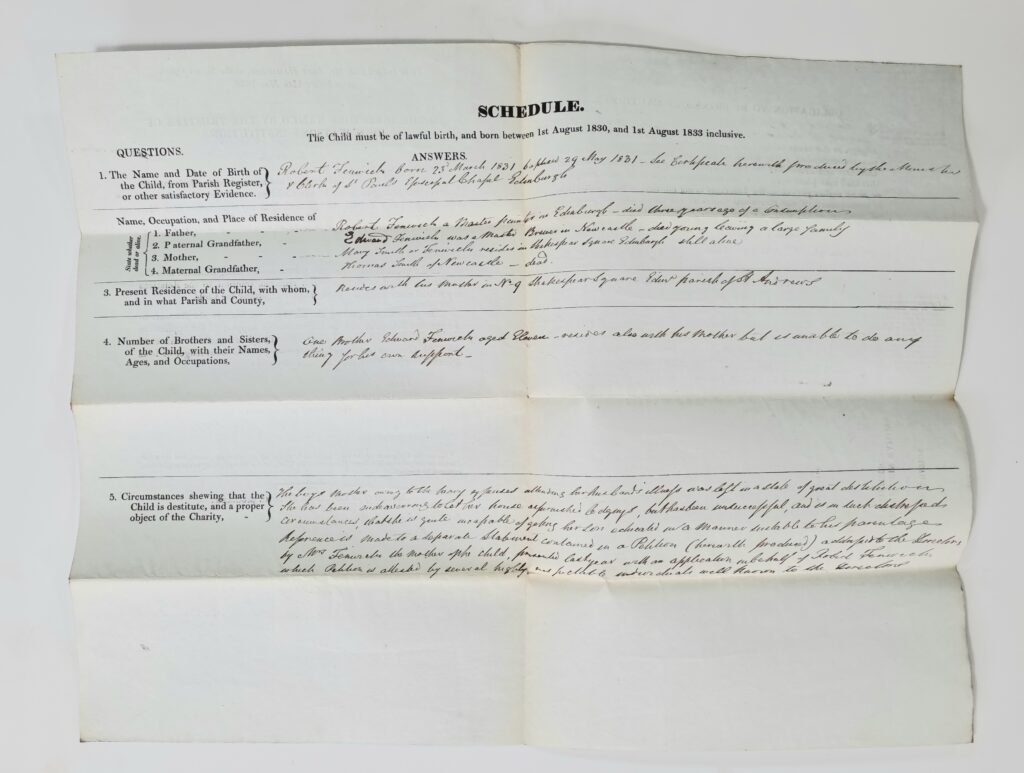 SCHEDULE.
The Child must be of lawful birth, and born between 1st August 1830, and 1st August 1833 inclusive.
QUESTIONS.
ANSWERS.
1. The Name and Date of Birth of
the Child, from Parish Register,
or other satisfactory Evidence.
Robert Fenwick born 23d March 1831, baptised 29 May 1831 - See Certificate herewith produced by the
& Clerk of St Paul's Episcopal Chapel Edinburgh
Name, Occupation, and Place of Residence of
State whether dead or alive
1. Father,
2. Paternal Grandfather,
3. Mother,
4. Maternal Grandfather,
Robert Fenwick a Master in Edinburgh - died three years ago of a Consumption
Edward Fenwick was a Master Brewer in Newcastle - died young leaving a large family
Mary Smith or Fenwick resides in Shakespear Square Edinburgh still alive
Thomas Smith of Newcastle - dead.
3. Present Residence of the Child, with whom,
and in what Parish and County,
Resides with his Mother in No 9 Shakespear Square Edinr parish of St Andrews
4. Number of Brothers and Sisters,
of the Child, with their Names,
Ages, and Occupations,
One Brother Edward Fenwick aged Eleven - resides also with his Mother but is unable to do any
thing for his own support -
5. Circumstances shewing that the
Child is destitute, and a proper
object of the Charity,
The boys Mother owing to the heavy expenses attending her husbands illness was left in a state of great destitution
She has been endeavouring to Let her house as furnished Lodgings, but has been unsuccessful, and is in such distressed
circumstances, that she is quite incapable of getting her Son educated in a Manner suitable to his parentage
Reference is made to a separate Statement contained in a Petition (herewith produced) addressed to the Directors
by Mrs Fenwick the mother of the child, presented last year with an application in behalf of Robert Fenwick
which Petition is attested by several highly respectable individuals well known to the Directors